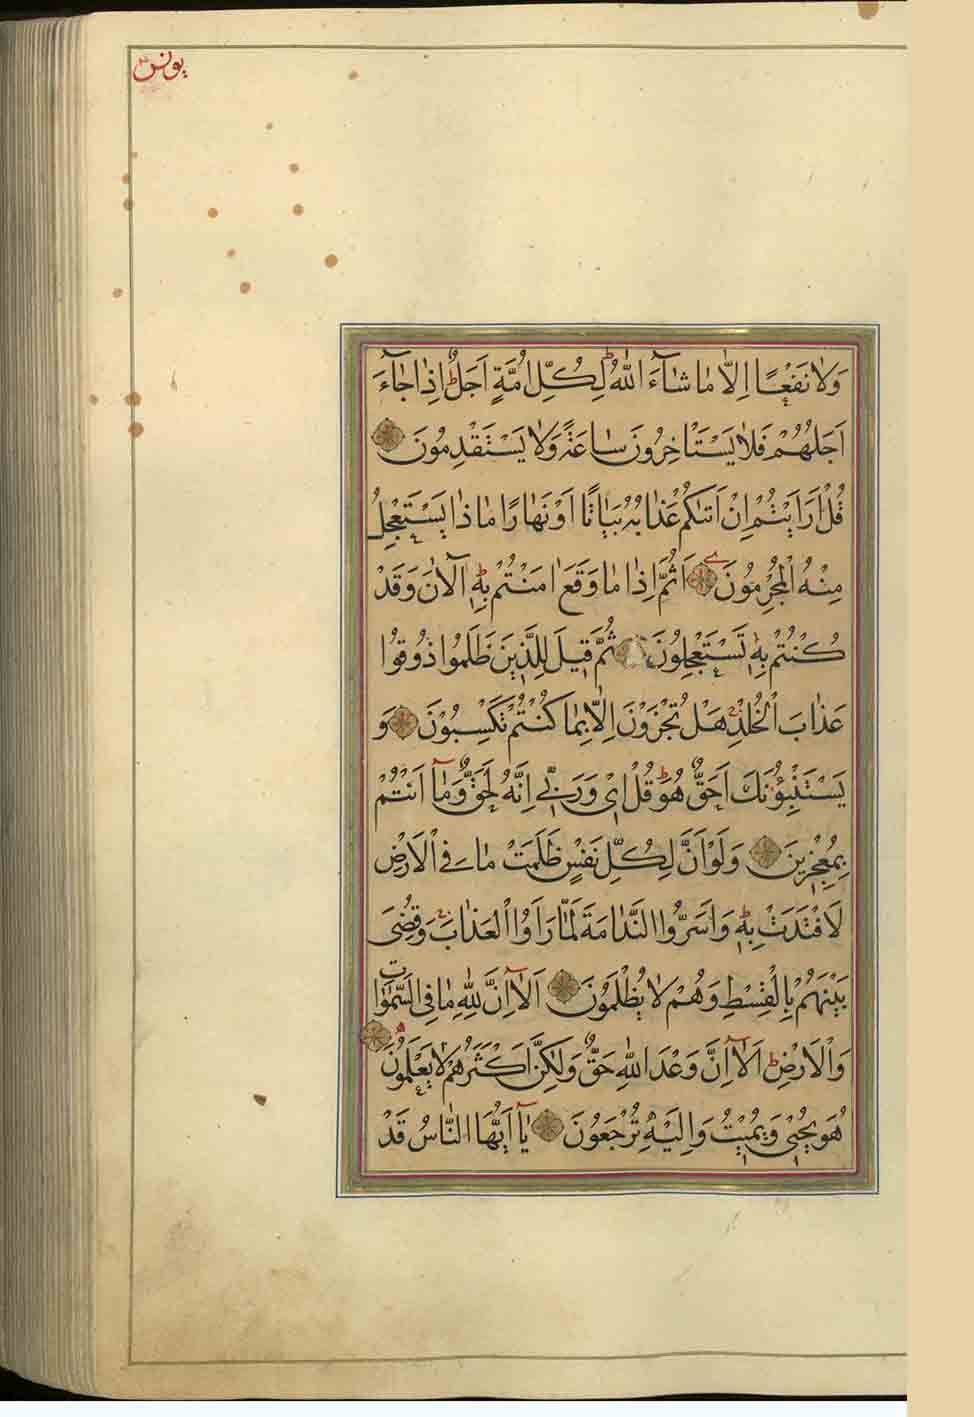 يونس
وَلَا نَفْعًا اِلَّا مَا شَٓاءَ اللّٰهُ ط لِكُلِّ اُمَّةٍ اَجَلٌ ط اِذَا جَٓاءَ
اَجَلُهُمْ فَلَا يَسْتَاْخِرُونَ سَاعَةً وَلَا يَسْتَقْدِمُونَ
قُلْ اَرَاَيْتُمْ اِنْ اَتٰىكُمْ عَذَابُهُ بَيَاتًا اَوْ نَهَارًا مَاذَا يَسْتَعْجِلُ
مِنْهُ الْمُجْرِمُونَ اَثُمَّ اِذَا مَا وَقَعَ اٰمَنْتُمْ بِهِ ط اٰلْاٰنَ وَقَدْ
كُنْتُمْ بِهِ تَسْتَعْجِلُونَ ثُمَّ قِيلَ لِلَّذِينَ ظَلَمُوا ذُوقُوا
عَذَابَ الْخُلْدِ هَلْ تُجْزَوْنَ اِلَّا بِمَا كُنْتُمْ تَكْسِبُونَ وَ
يَسْتَنْبِؤُنَكَ اَحَقٌّ هُوَ ط قُلْ اِى وَرَبِّى اِنَّهُ لَحَقٌّ وَمَٓا اَنْتُمْ
بِمُعْجِزِينَ وَلَوْ اَنَّ لِكُلِّ نَفْسٍ ظَلَمَتْ مَا فِى الْاَرْضِ
لَافْتَدَتْ بِهِ ط وَاَسَرُّوا النَّدَامَةَ لَمَّا رَاَوُا الْعَذَابَ وَقُضِىَ
بَيْنَهُمْ بِالْقِسْطِ وَهُمْ لَا يُظْلَمُونَ اَلَٓا اِنَّ لِلّٰهِ مَا فِى السَّمٰوَاتِ
وَالْاَرْضِ ط اَلَٓا اِنَّ وَعْدَ اللّٰهِ حَقٌّ وَلٰكِنَّ اَكْثَرَهُمْ لَا يَعْلَمُونَ
هُوَ يُحْيِى وَيُمِيتُ وَاِلَيْهِ تُرْجَعُونَ يَٓا اَيُّهَا النَّاسُ قَدْ